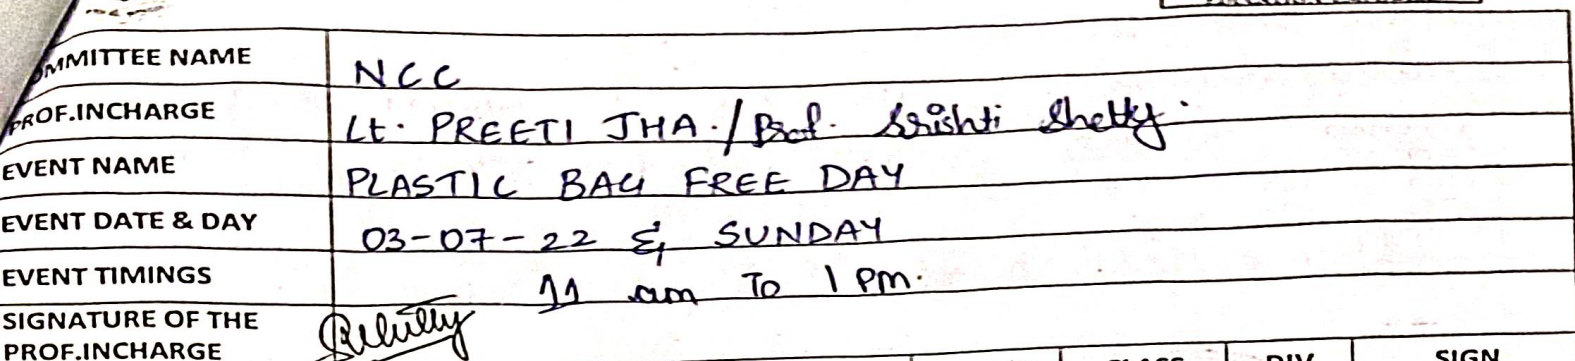 OMMITTEE NAME NCC
PROF.INCHARGE Lt. PREETI JHA./Prof. Srishti Shetty.
EVENT NAME PLASTIC BAG FREE DAY
EVENT DATE & DAY 03-07-22 & SUNDAY
EVENT TIMINGS 11 am To 1 Pm.
SIGNATURE OF THE
PROF.INCHARGE
CLASS DIV SIGN